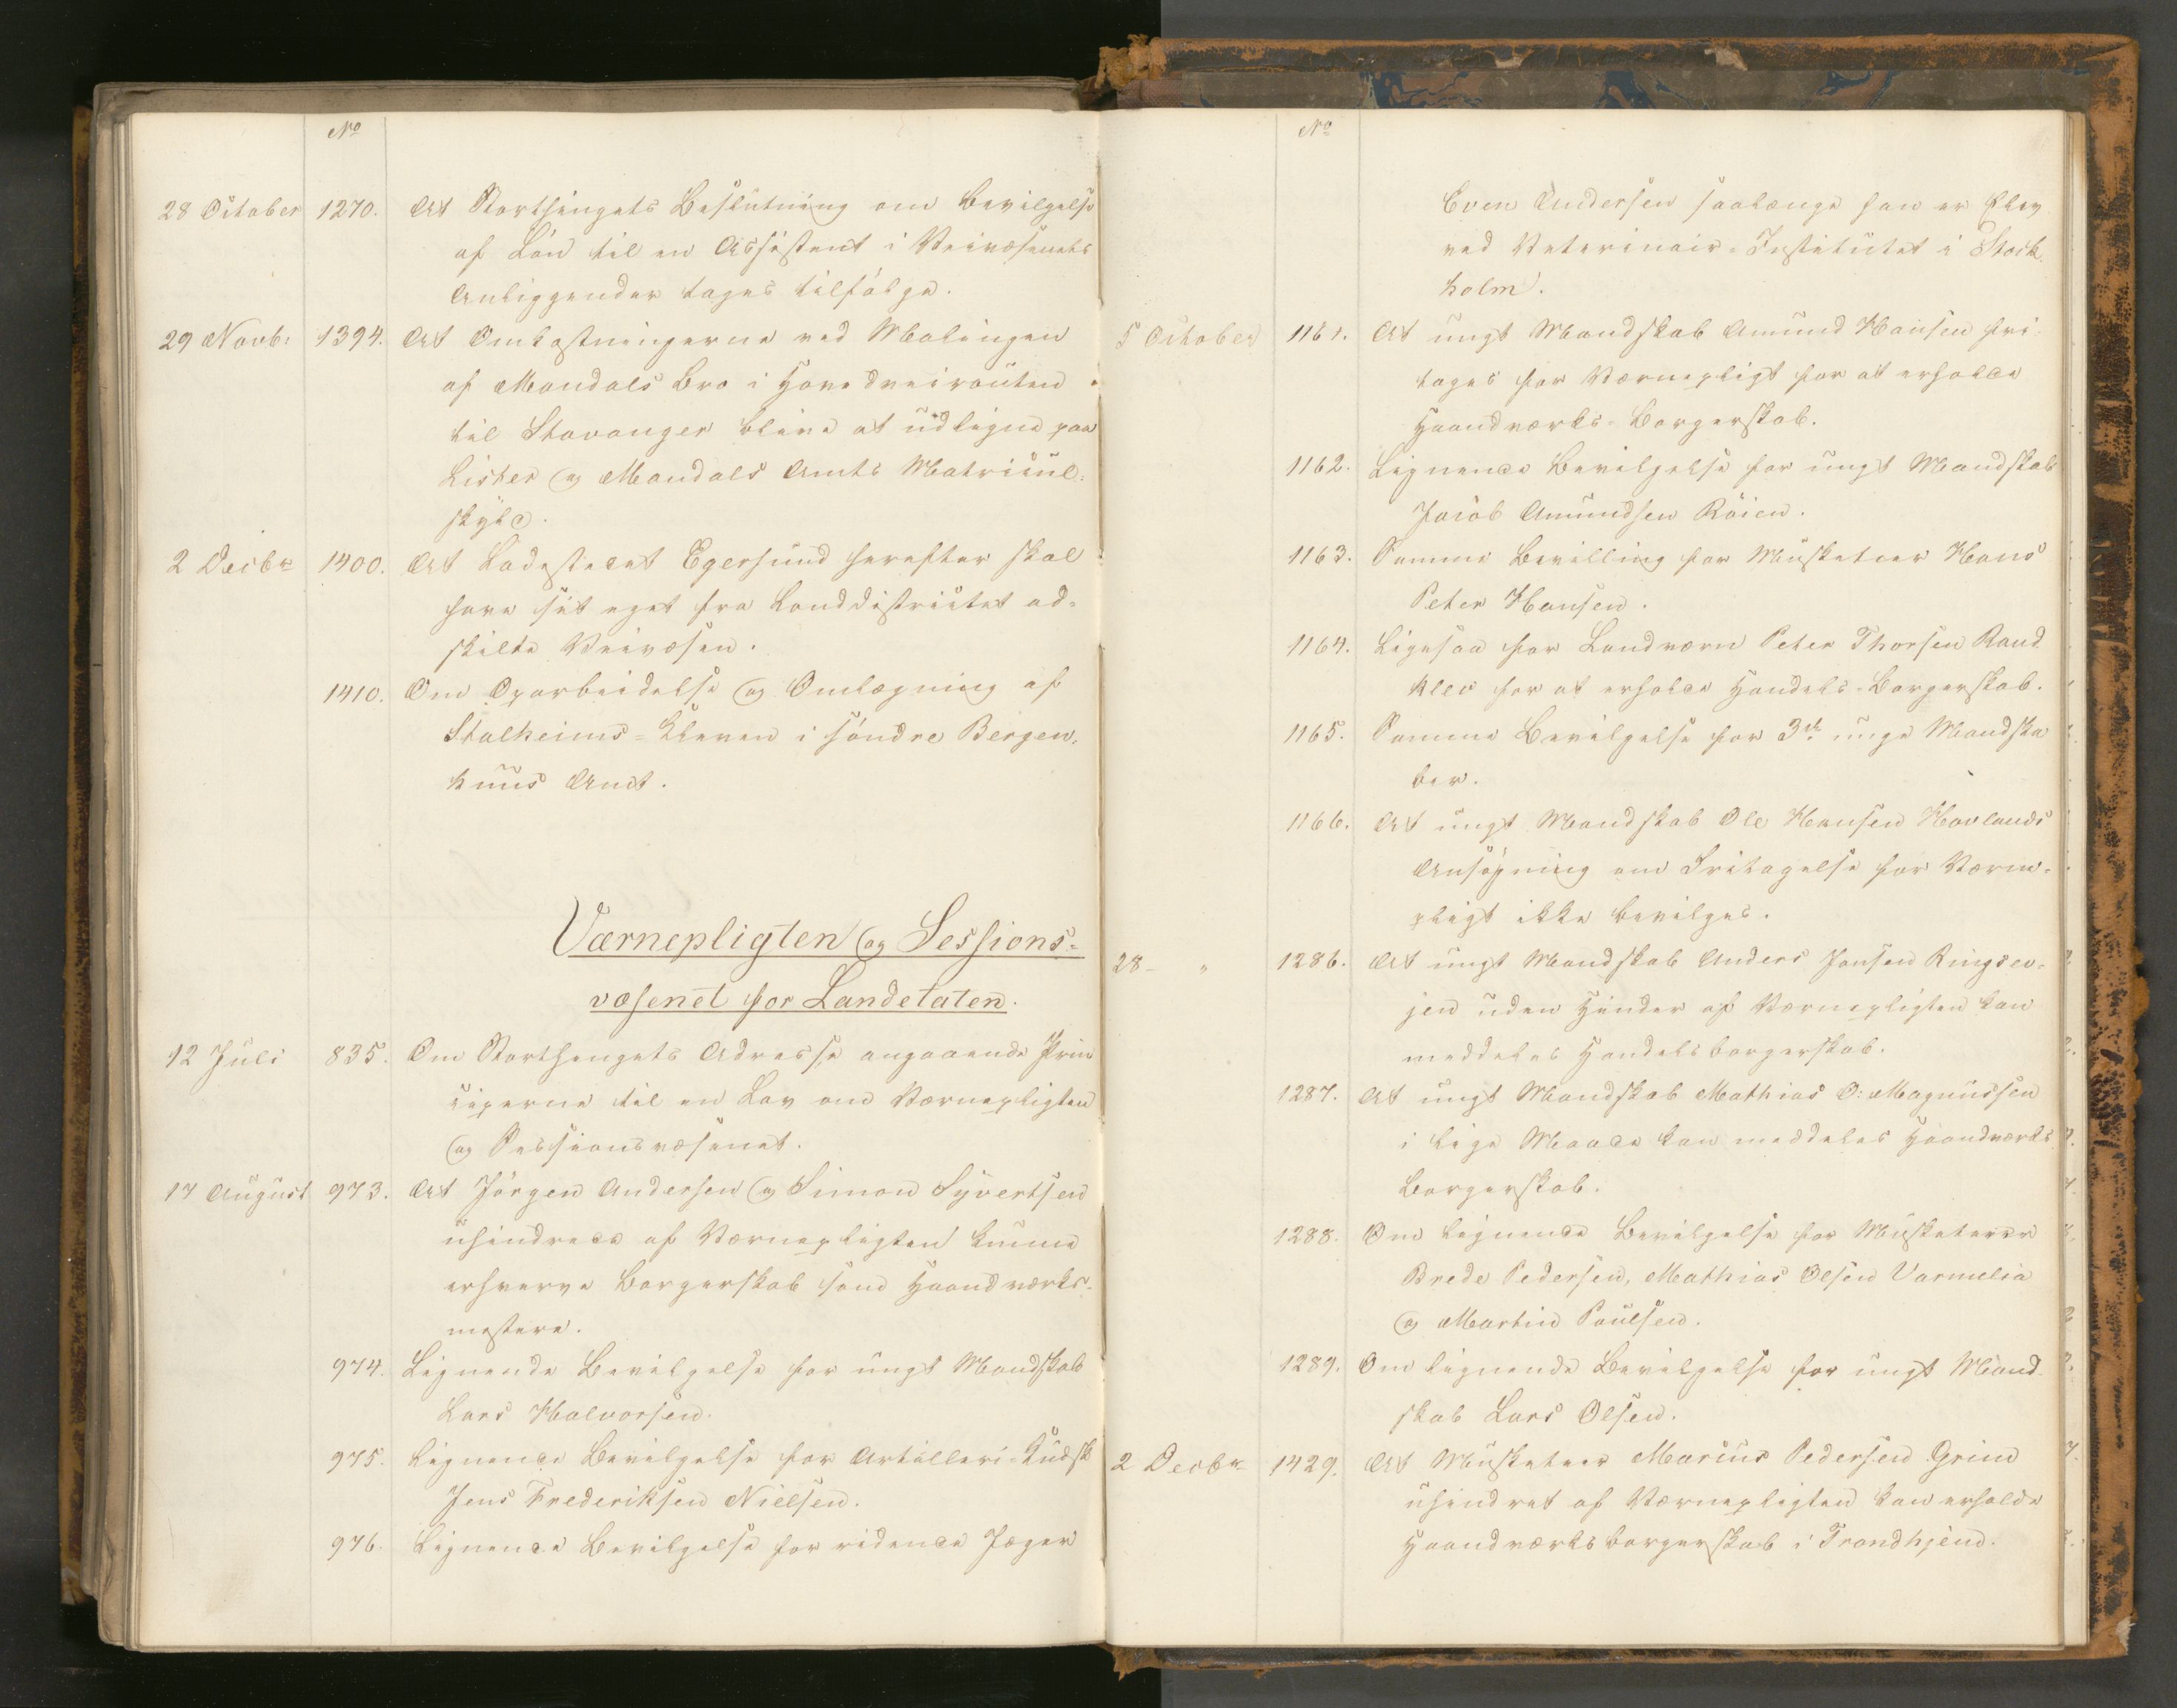 No
28 October 1270. At Storthingets Beslutning om Bevilgelse
af Lön til en Assistent i Veivæsenets
Anliggender tages tilfölge.
29 Novb: 1394. At Omkostningerne ved Malingen
af Mandals Bro i Hovedveirouten
til Stavanger blive at udligne paa
Lister og Mandals Amts Matricul-
skyld.
2 Decbr 1400. At Ladestedet Egersund herefter skal
have sit eget fra Landdistrictet ad-
skilte Veivæsen.
1410. Om Oparbeidelse og Omlægning af
Stalheims-Kleven i söndre Bergen-
huus Amt.
Værnepligten og Sessions-
væsenet for Landetaten.
12 Juli 835. Om Storthingets Adresse angaaende Prin
ciperne til en Lov om Værnepligten
og Sessionsvæsenet.
17 August 973. At Jörgen Andersen og Simon Syvertsen
uhindrede af Værnepligten kunne
erhverve Borgerskab som Haandværks-
mestere.
974. Lignende Bevilgelse for ungt Mandskab
Lars Halvorsen.
975. Lignende Bevilgelse for Artilleri-Kudsk
Jens Frederiksen Nielsen.
976. Lignende Bevilgelse for ridende Jæger
No
Even Andersen saalænge han er Elev
ved Veterinair-Institutet i Stock
holm.
5 October 1161. At ungt Mandskab Amund Hansen fri-
tages for Værnepligt for at erholde
Haandværks-Borgerskab.
1162. Lignende Bevilgelse for ungt Mandskab
Jacob Amundsen Röien.
1163. Samme Bevilling for Musketeer Hans
Peter Hansen.
1164. Ligesaa for Landværn Peter Thorsen Rand
klev for at erholde Handels-Borgerskab.
1165. Samme Bevilgelse for 3de unge Mandska
ber.
1166. At ungt Mandskab Ole Hansen Hovlands
Ansögning om Fritagelse for Værne-
pligt ikke bevilges.
28 - " 1286. At ungt Mandskab Anders Jansen Ringsev-
jen uden Hinder af Værnepligten kan
meddeles Handelsborgerskab.
1287. At ungt Mandskab Mathias O: Magnussen
i lige Maade kan meddeles Haandværks
Borgerskab.
1288. Om lignende Bevilgelse for Musketerer
Brede Pedersen, Mathias Olsen Varmelia
og Martin Paulsen.
1289. Om lignende Bevilgelse for ungt Mand
skab Lars Olsen.
2 Decbr 1429. At Musketeer Marius Pedersen Grim
uhindret af Værnepligten kan erholde
Haandværksborgerskab i Trondhjem.